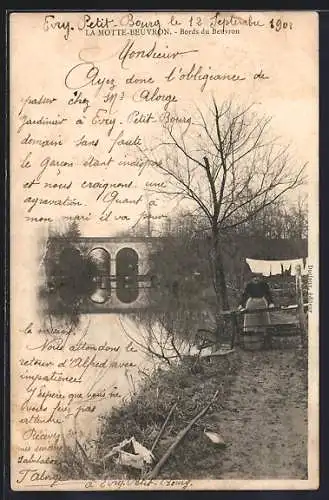 Evry Petit-Bourg le 12 Septembre 1901
LA MOTTE-BEUVRON. - Bords du Beuvron
Monsieur
Ayez donc l'obligeance de
passer chez Mr Aloige
Jardinier à Evry-Petit Bourg
demain sans faute
le Garçon étant indispo
et nous craignons une
agravation. Quant à
mon mari il va pour
la main
Nous attendons le
retour d'Alfred avec
impatience
J'espère que vous ne
vous ferez pas
attendre
Recevez
mes
Salutations
à Evry. Petit-Bourg